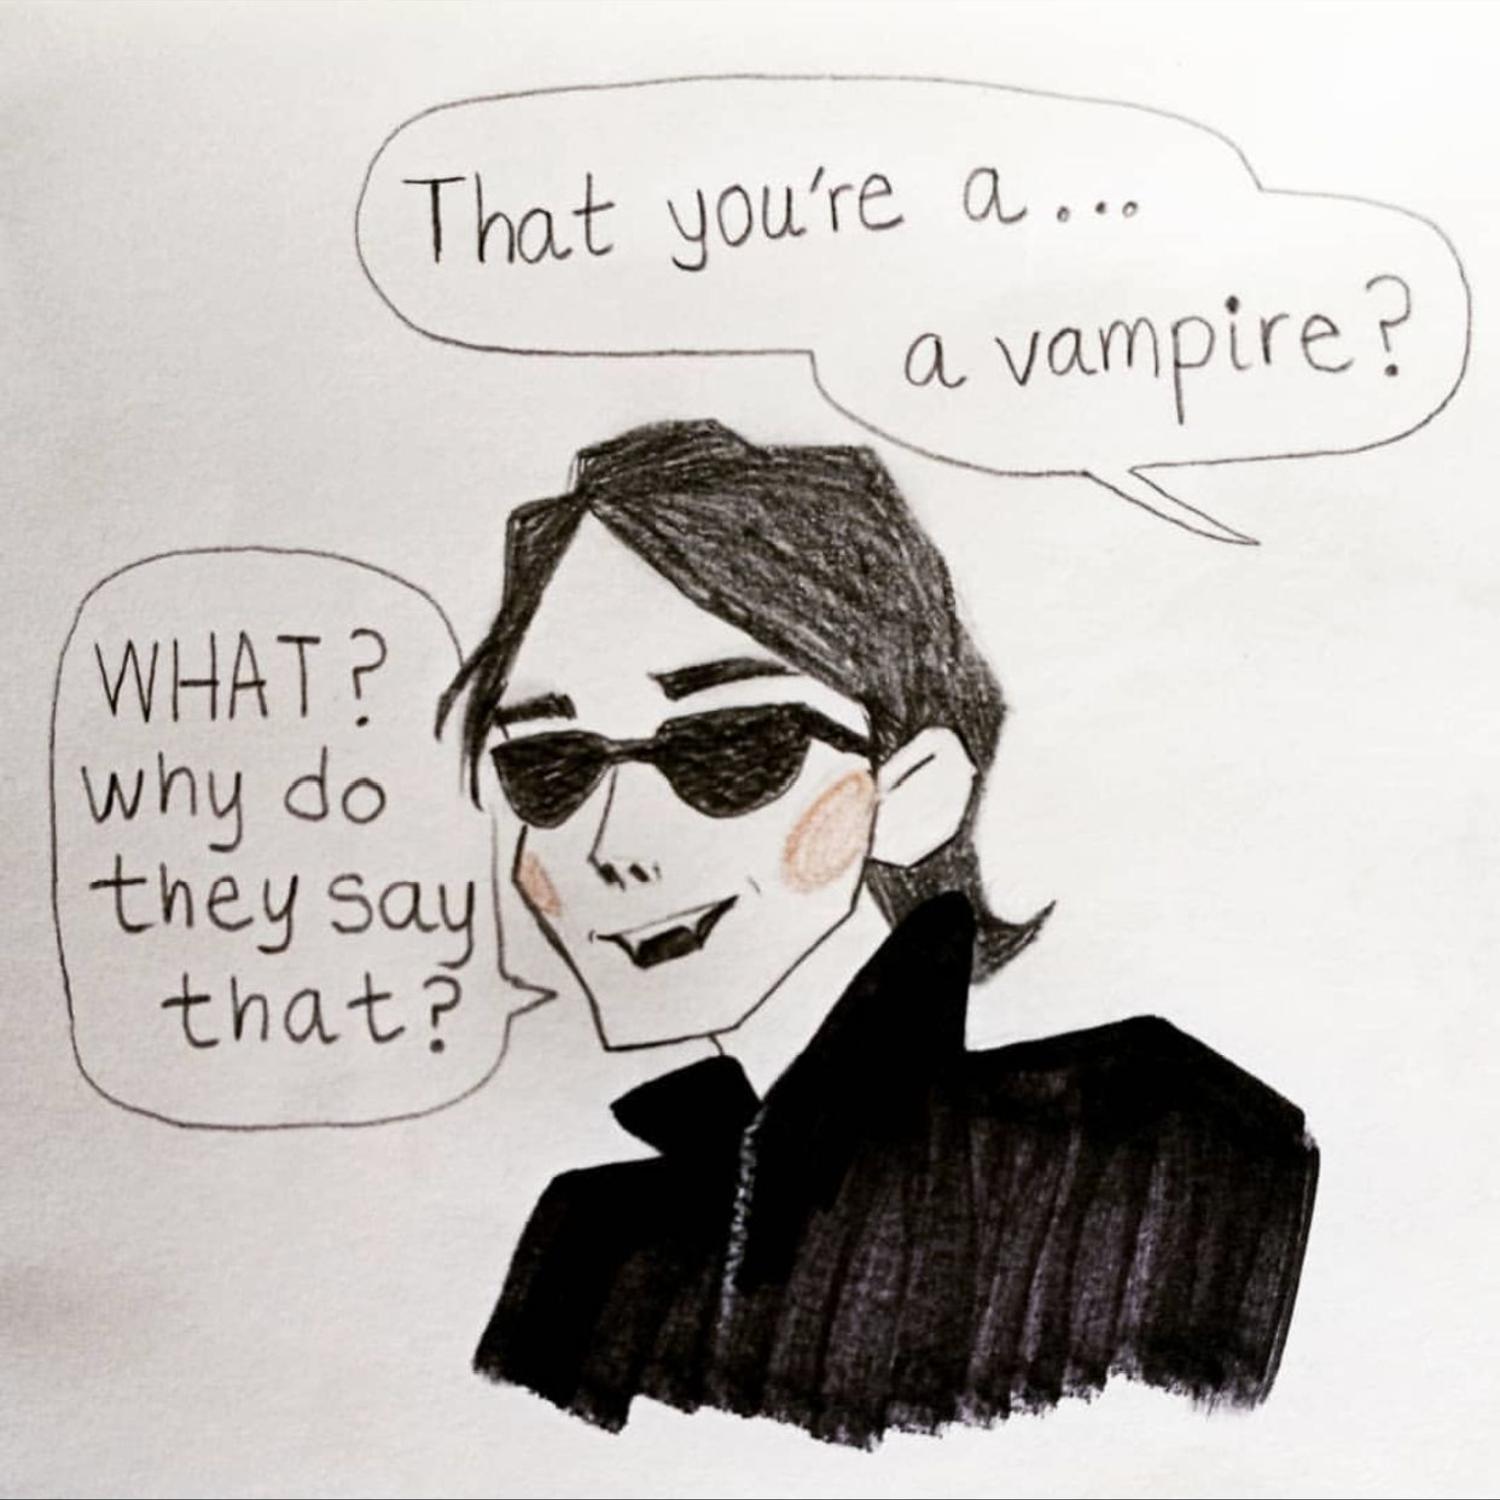 That you're a...
a vampire?
WHAT?
why do
they say
that?